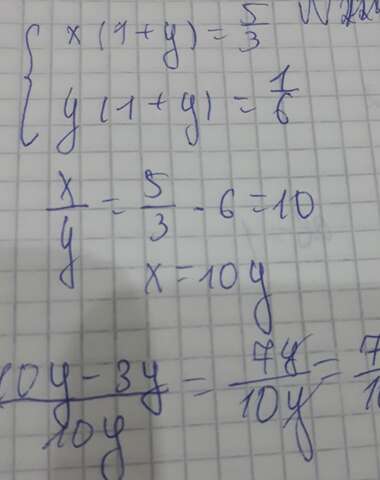 x(1+y)=5/3
y(1+y)=1/6
x/y = 5/3 · 6 = 10
x = 10y
10y-3y/10y = 7y/10y =